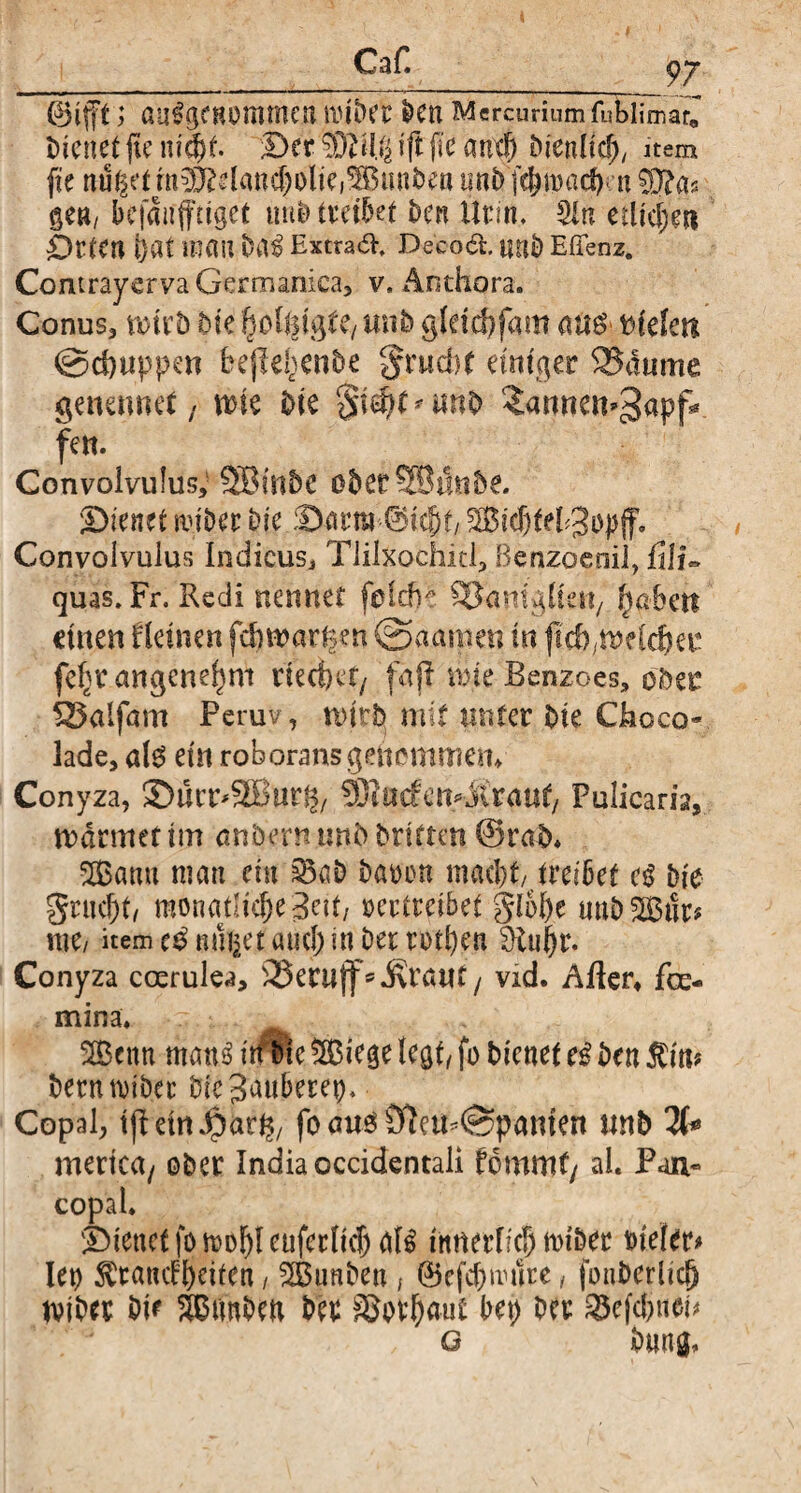 Caf. 97
Gifft; außgenommen wider den Mercurium sublimat.
dienet sie nicht. Der Miltz ist sie auch dienlich, item
sie nützet in Melancholie, Wunden und schwachen Ma-
gen, besänfftiget und treibet den Urin. An etlichen
Orten hat man das Extract. Decoct. und Essenz.
Contrayerva Germanica, v. Anthora.
Conus, wird die holtzigte, und gleichsam aus vielen
Schuppen bestehende Frucht einiger Bäume
genennet, wie die Ficht- und Tannen-Zapf-
fen.
Convolvulus, Winde oder Wünde.
Dienet wider die Darm-Gicht, Wichtel-Zopff.
Convolvulus Indicus, Tlilxochitl, Benzoenil, sili-
quas. Fr. Redi nennet solche Vaniglien, haben
einen kleinen schwartzen Saamen in sich, welcher
sehr angenehm riechet, fast wie Benzoes, oder
Balsam Peruv, wird mit unter die Choco-
lade, als ein roborans genommen.
Conyza, Dürr-Wurtz, Mucken-Kraut, Pulicaria,
wärmet im andern und dritten Grad.
Wann man ein Bad davon macht, treibet es die
Frucht, monatliche Zeit, vertreibet Flöhe und Wür-
me, item es nützet auch in der rothen Ruhr.
Conyza cœrulea, Beruff-Kraut, vid. After. fœ-
mina.
Wenn mans in die Wiege legt, so dienet es den Kin-
dern wider die Zauberey.
Copal, ist ein Hartz, so aus Neu-Spanien und A-
merica, oder India occidentali kömmt, al. Pan-
copal.
Dienet so wohl euserlich als innerlich wider vieler-
ley Kranckheiten, Wunden, Geschwüre, sonderlich
wider die Wunden der Vorhaut bey der Beschnei-
G dung.